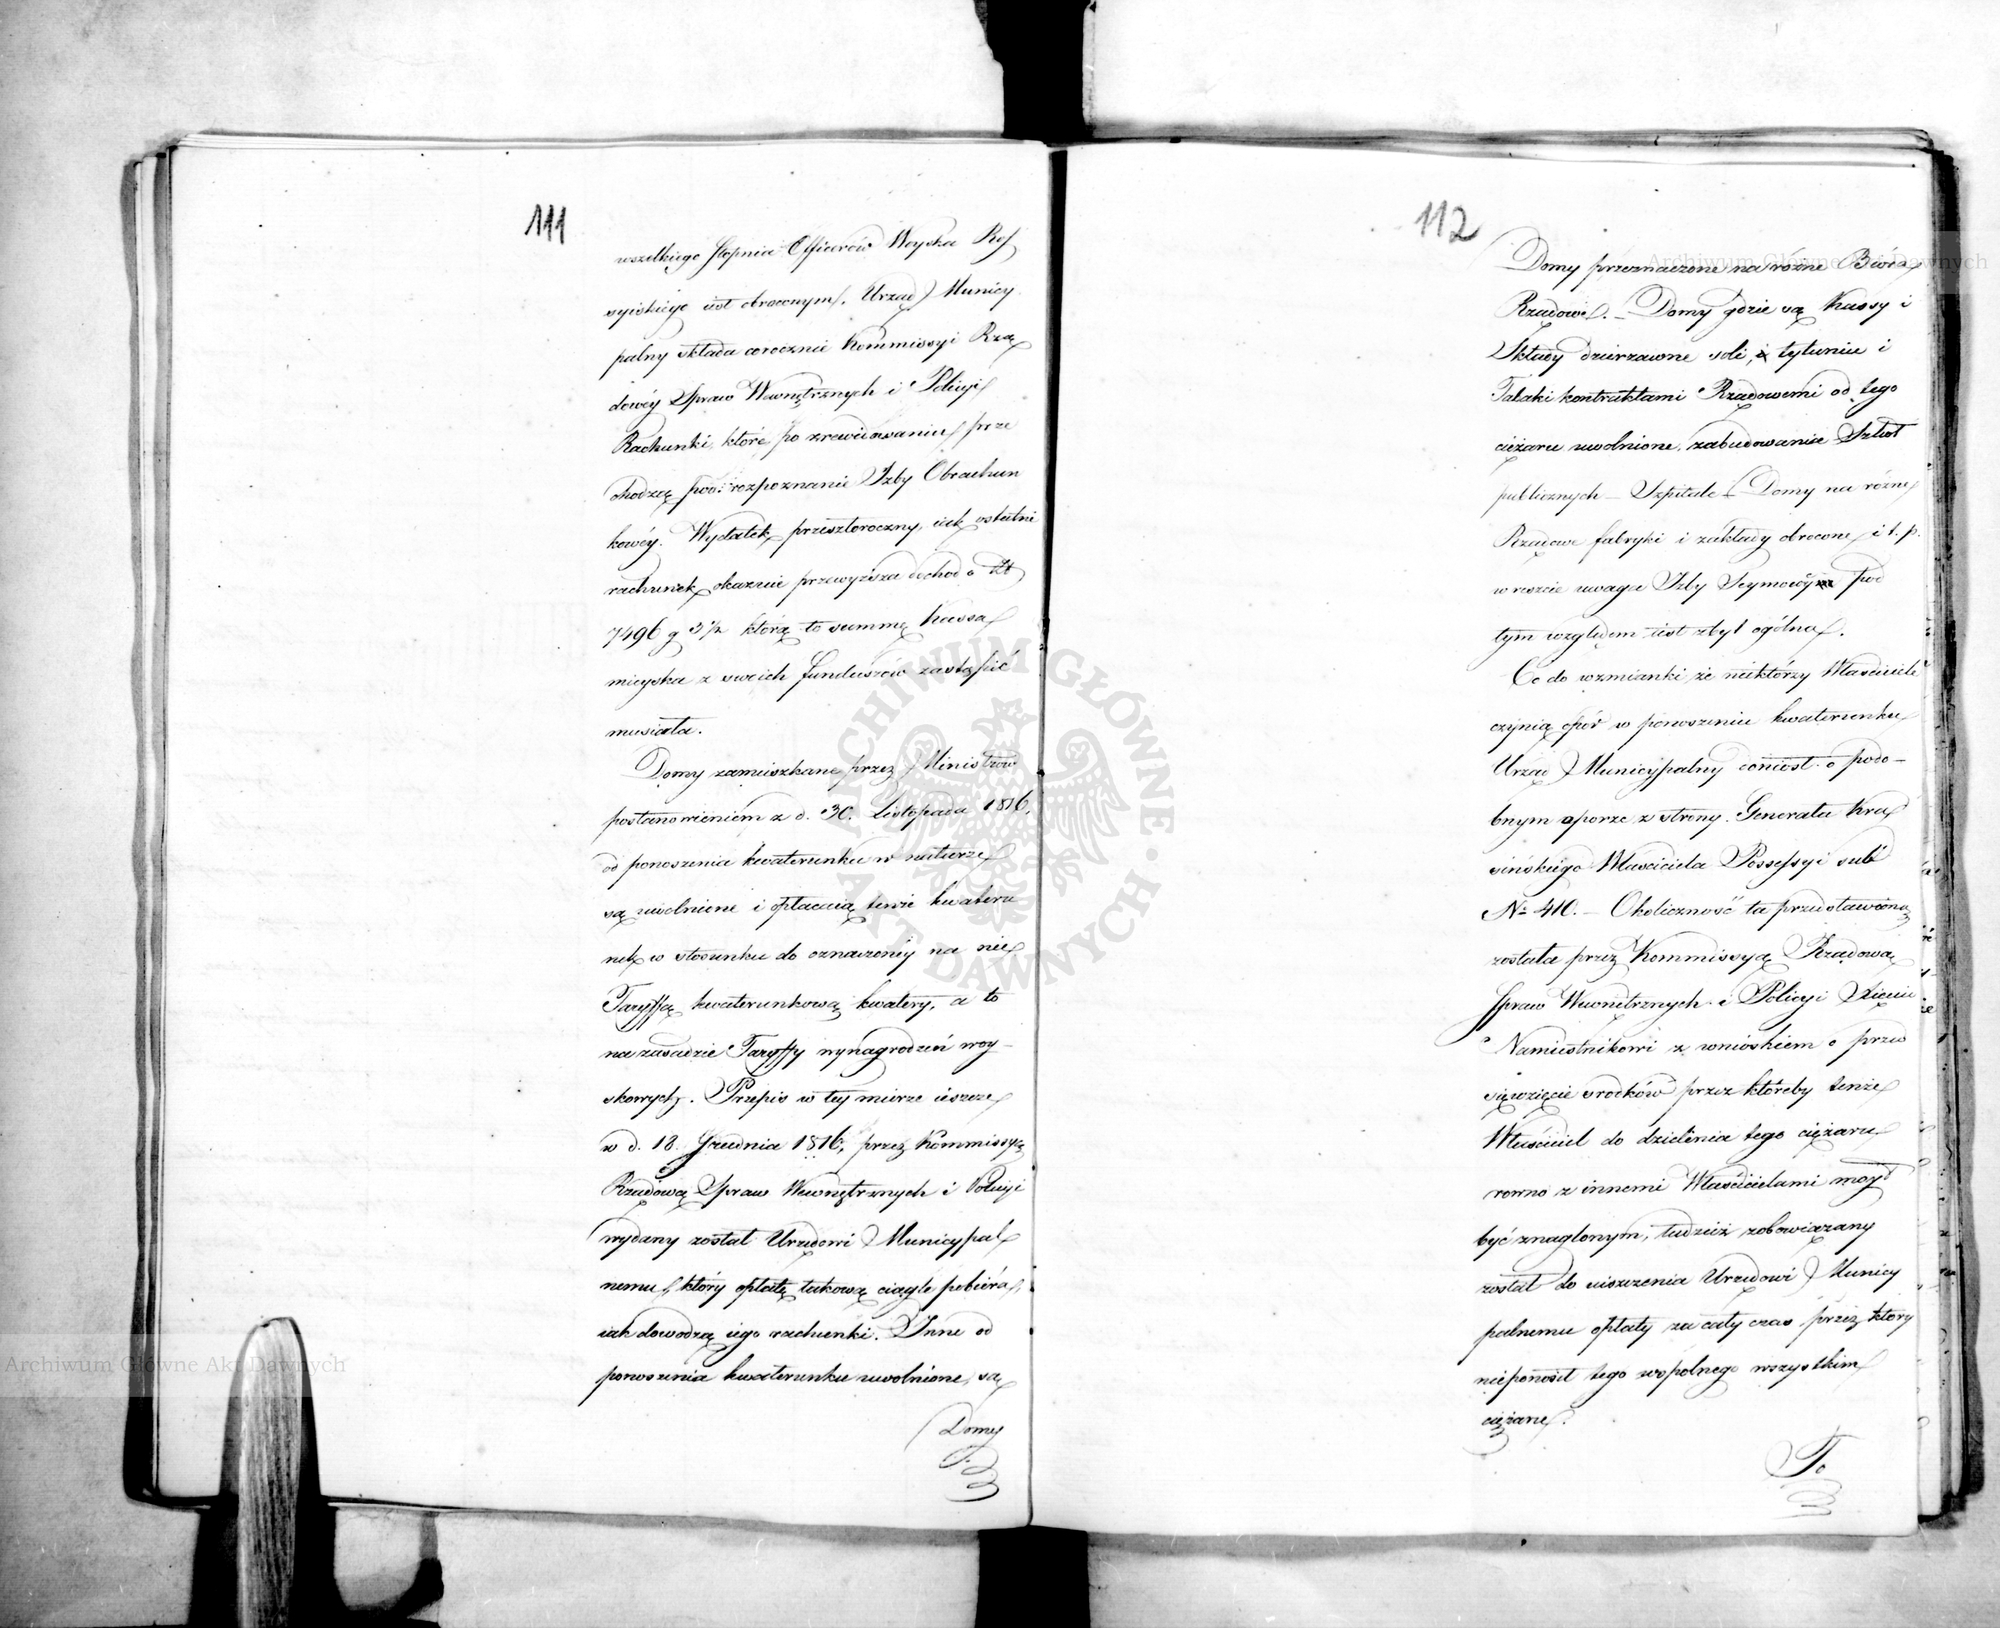 111
wszelkiego stopnia Officerów Woyska Ros
syiskiego iest obroconym. Urząd Municy
palny składa corocznie Kommissyi Rzą
dowéy Spraw Wewnętrznych i Policyi
Rachunki, które po zrewidowaniu prze
chodzą pod rozpoznanie Izby Obrachun
kowéy. Wydatek przeszłoroczny, iak ostatni
rachunek okazuie przewyższa dochod o Zł
7496 g 3½ którą to summę Kassa
mieyska z swoich funduszów zastąpić
musiała.
Domy zamieszkane przez Ministrów
postanowieniem z d. 30. Listopada 1816.
od ponoszenia kwaterunku w naturze
są uwolnione i opłacaią tenże kwateru
nek w stosunku do oznaczonéy na nie
Taryffą kwaterunkową kwatery, a to
na zasadzie Taryffy wynagrodzeń woy-
skowych. Przepis w tey mierze ieszcze
w d. 18. Grudnia 1816, przez Kommissyą
Rządową Spraw Wewnętrznych i Policyi
wydany został Urzędowi Municypal
nemu, który opłatę takową ciągle pobiéra,
iak dowodzą iego rachunki. Inne od
ponoszenia kwaterunku uwolnione, są
Domy
112
Domy przeznaczone na różne Bióra
Rządowe. – Domy gdzie są Kassy i
Składy dzierżawne soli, tytuniu i
Tabaki kontraktami Rządowemi od tego
ciężaru uwolnione, zabudowania Szkół
publicznych – Szpitale – Domy na różne
Rządowe fabryki i zakłady obrocone i t. p.
wreszcie uwaga Izby Seymowéy pod
tym względem iest zbyt ogólna.
Co do wzmianki że niektórzy Właściciele
czynią opór w ponoszeniu kwaterunku
Urząd Municypalny doniosł o podo-
bnym oporze z strony Generała Kra
sińskiego Właściciela Possessyi sub
№ 410. – Okoliczność ta przedstawioną
została przez Kommissyą Rządową
Spraw Wewnętrznych i Policyi Xięciu
Namiestnikowi z wnioskiem o przed
sięwzięcie srodków przez któreby tenże
Właściciel do dzielenia tego ciężaru
rowno z innemi Właścicielami mógł
być znaglonym, tudzież zobowiązany
został do uiszczenia Urzędowi Municy
palnemu opłaty za cały czas przez który
nieponosił tego wspolnego wszystkim
ciężaru.
To
Archiwum Główne Akt Dawnych
Archiwum Główne Akt Dawnych
ARCHIWUM GŁÓWNE AKT DAWNYCH